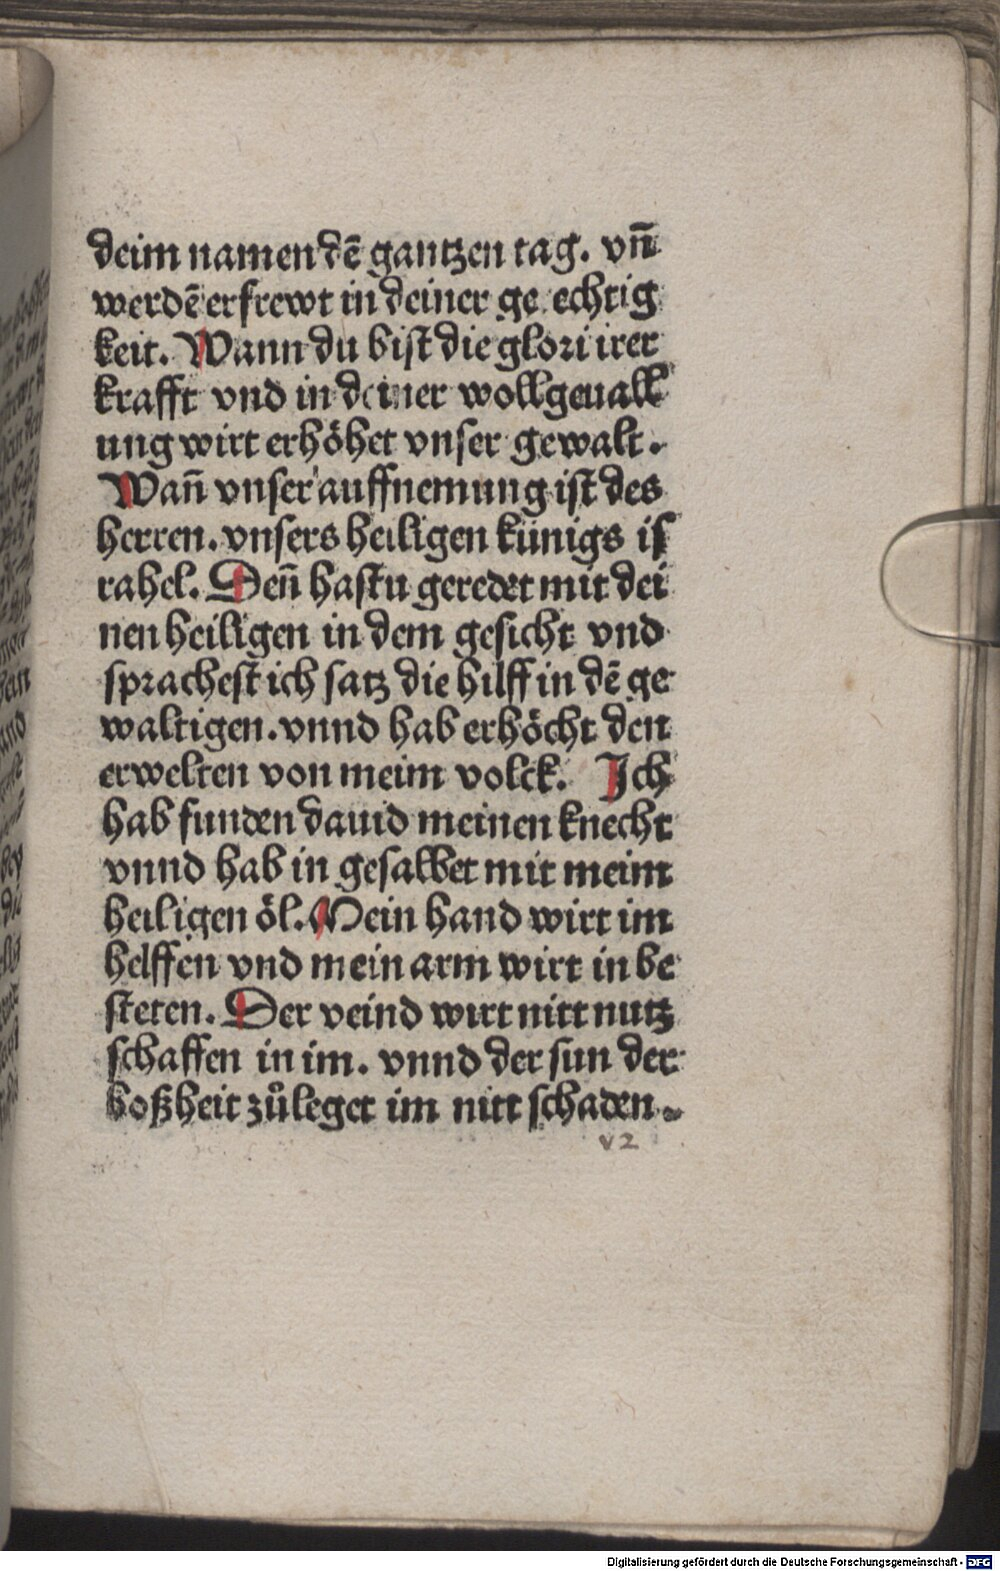 deim namen dē gantzen tag. vn̄
werdē erfrewt in deiner ge echtig
keit. Wann du bist die glori irer
krafft vnd in deiner wollgeuall
ung wirt erhöhet vnser gewalt.
Wan̄ vnser auffnemung ist des
herren. vnsers heiligen künigs is
rahel. Den̄ hastu geredet mit dei
nen heiligen in dem gesicht vnd
sprachest ich satz die hilff in dē ge
waltigen. vnnd hab erhöcht den
erwelten von meim volck. Ich
hab funden dauid meinen knecht
vnnd hab in gesalbet mit meim
heiligen öl. Mein hand wirt im
helffen vnd mein arm wirt in be
steten. Der veind wirt nitt nutz
schaffen in im. vnnd der sun der
boßheit zůleget im nitt schaden.
v 2
Digitalisierung gefördert durch die Deutsche Forschungsgemeinschaft - DFG